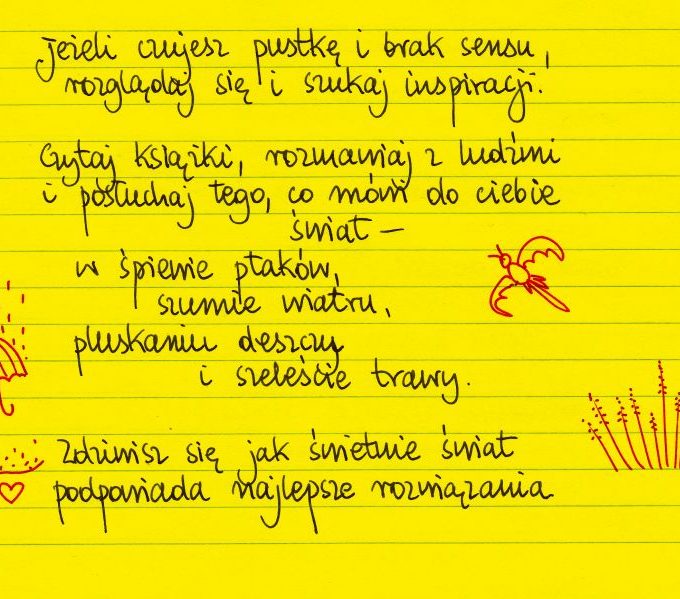 Jeżeli czujesz pustkę i brak sensu,
rozglądaj się i szukaj inspiracji.
Czytaj książki, rozmawiaj z ludźmi
i posłuchaj tego, co mówi do ciebie
świat –
w śpiewie ptaków,
szumie wiatru,
pluskaniu deszczu
i szeleście trawy.
Zdziwisz się jak świetnie świat
podpowiada najlepsze rozwiązania